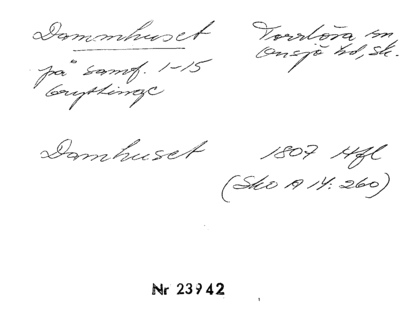 Dammhuset Torrlösa sn
Onsjö hd, Sk.
på samf. 1-15
Damhuset 1807 Hfl
(Sko A 14: 260)
Nr 23942